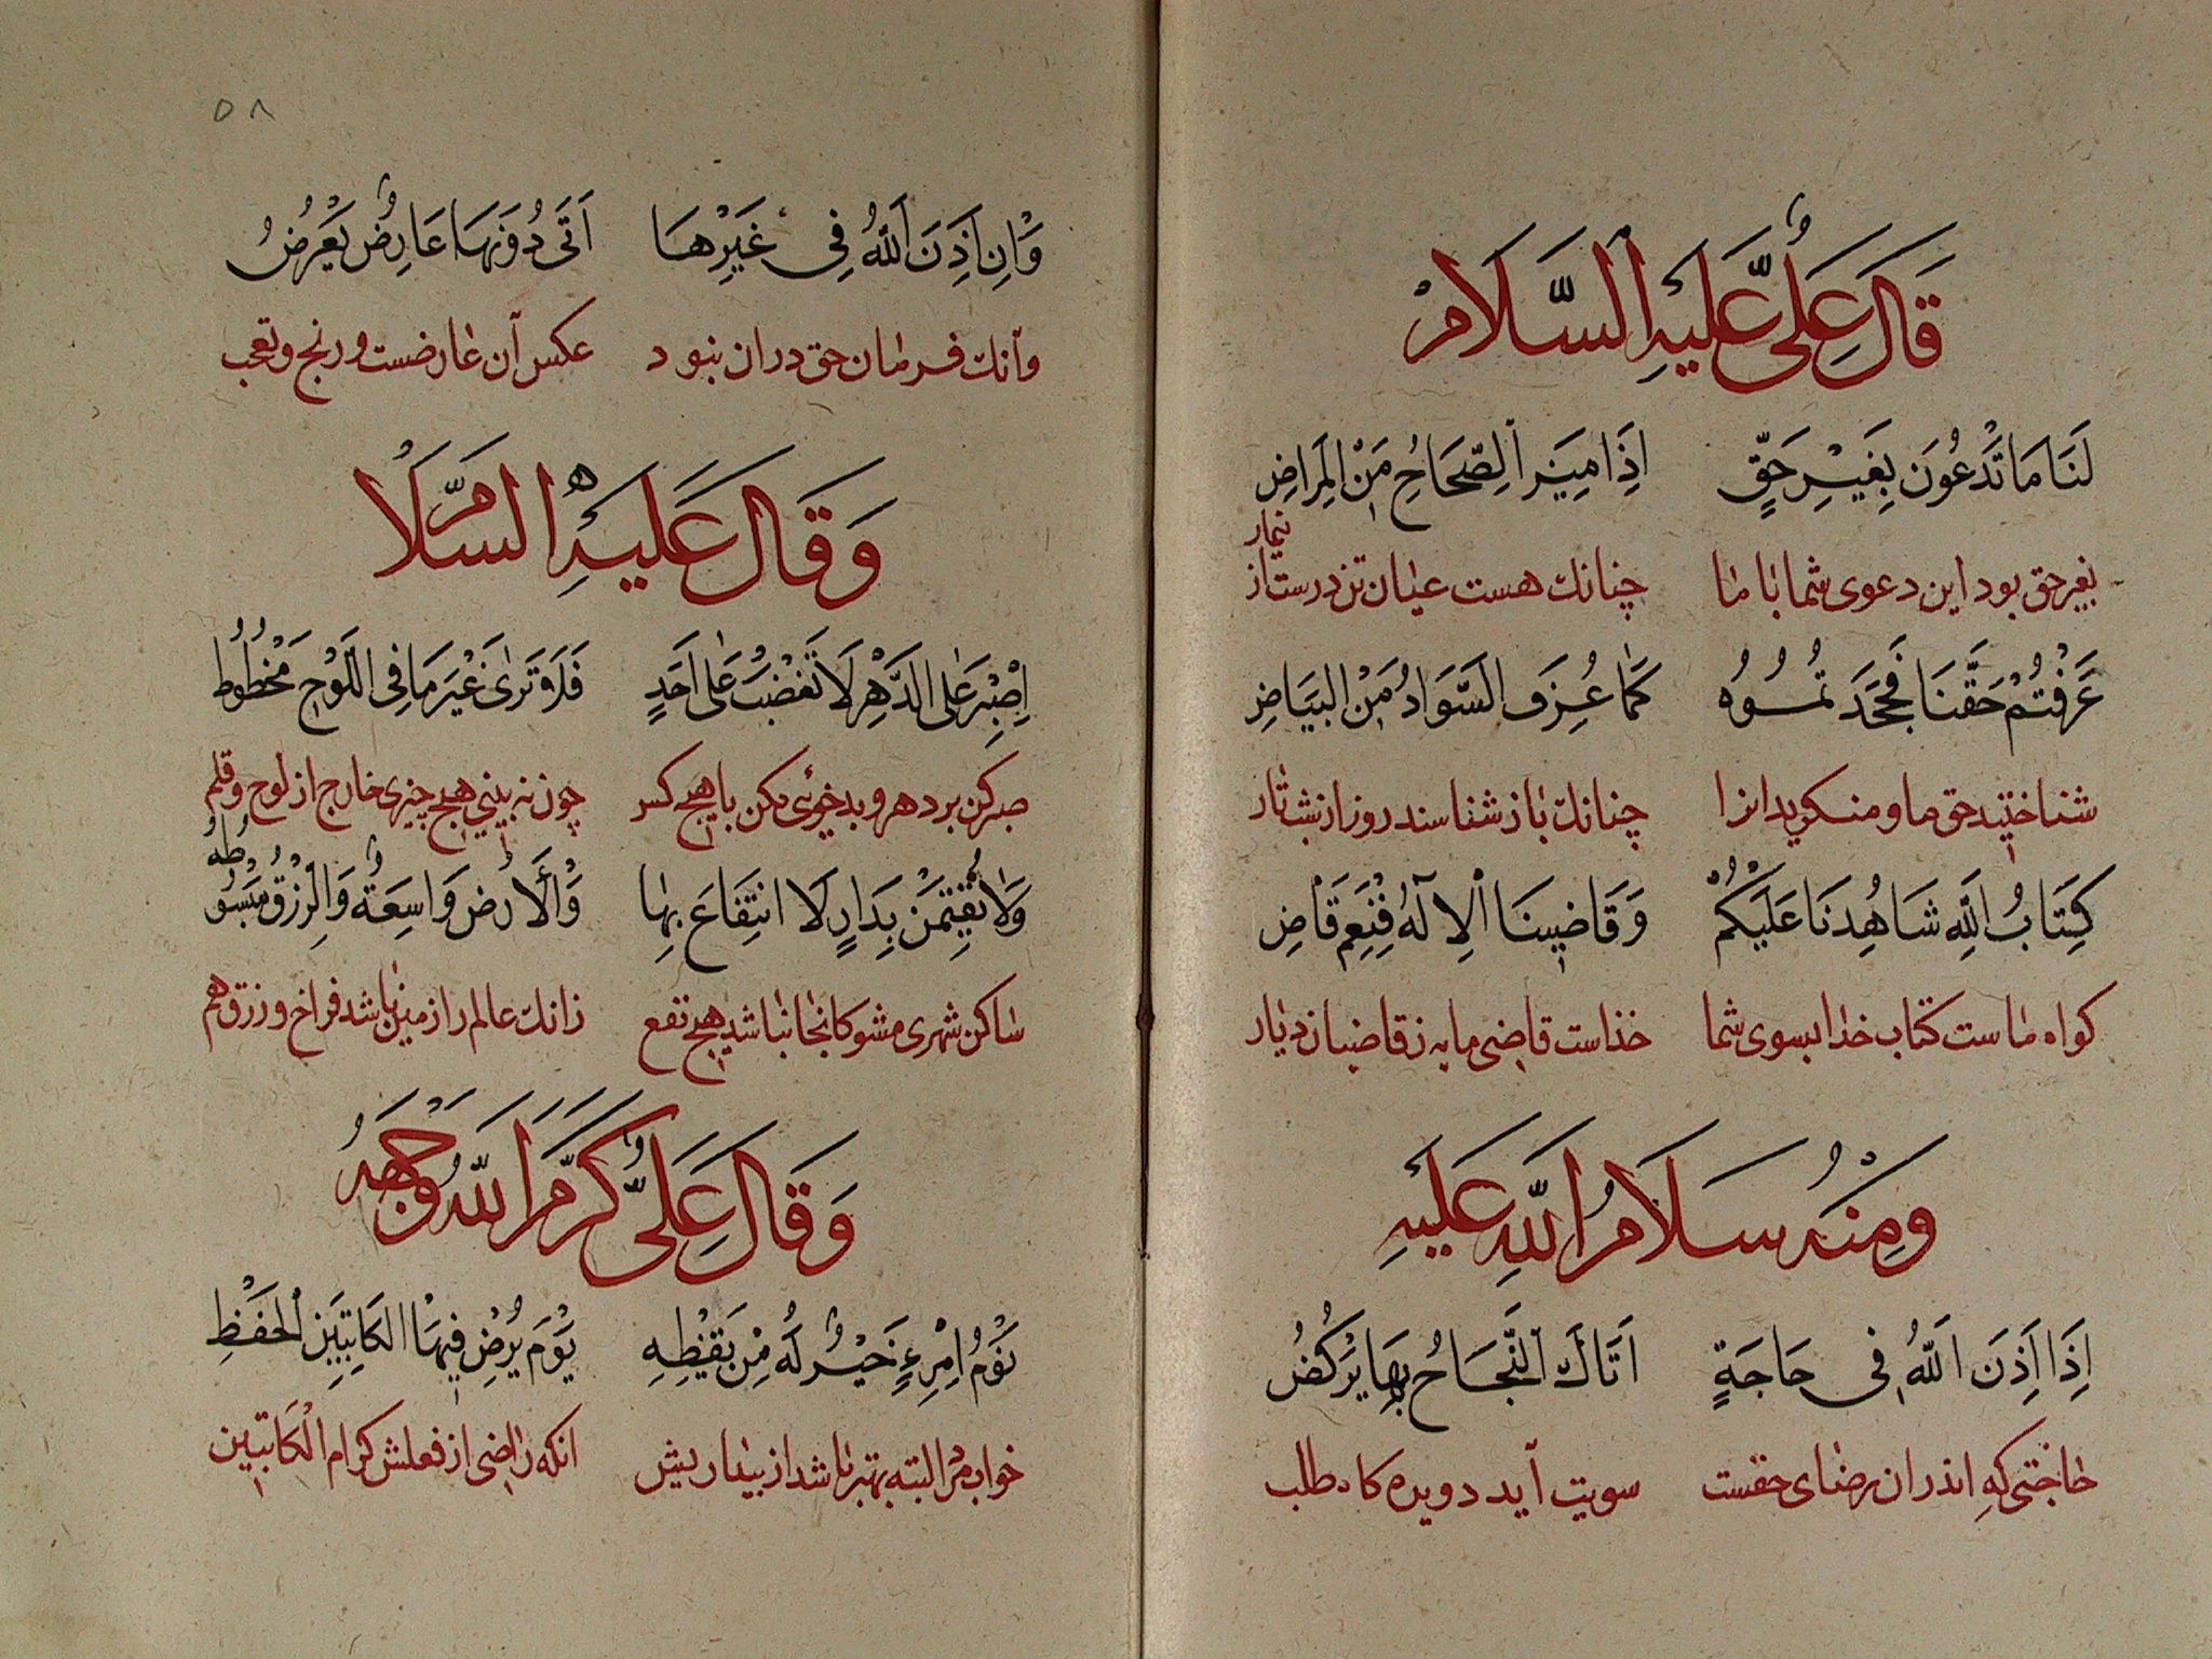 قَالَ عَلِيٌّ عَلَيْهِ السَّلَامْ
لَنَا مَا تَدْعُونَ بِغَيْرِ حَقٍّ اِذَا مِيزَ الصِّحَاحُ مِنَ الْمِرَاضِ
بغیر حق بود این دعوی شما با ما چنانك هست عیان تن درست از بیمار
عَرَفْتُمْ حَقَّنَا فَجَحَدْتُمُوُه كَمَا عُرِفَ السَّوَادُ مِنَ البَيَاضِ
شناختید حق ما و منکرید انرا چنانك باز شناسند روز از شب تار
كِتَابُ اللَّهِ شَاهِدُنَا عَلَيْكُمْ وَقَاضِينَا الْاِلَهُ فَنِعْمَ قَاضِ
کواه ماست کتاب خدا بسوی شما خذاست قاضی ما به ز قاضیان دیار
وَمِنْهُ سَلَامُ اللَّهِ عَلَيْهِ
اِذَا اَذِنَ اللَّهُ فِى حَاجَةٍ اَتَاكَ النَّجَاحُ بِهَا يَرْكُضُ
حاجتی که اندران رضای حقست سویت آید دویده کاه طلب
٥٨
وَاِنْ اَذِنَ اللَّهُ فِى غَيْرِهَا اَتَى دُوَنَهَا عَارِضٌ يَعْرِضُ
وآنك فرمان حق دران نبود عکس آن عارضست و رنج و تعب
وَقَالَ عَلَيْهِ السَّلَامْ
اِصْبِرْ عَلَى الدَّهْرِ لَا تَغْضَبْ عَلَى اَحَدٍ فَلَا تَرَى غَيْرَ مَا فِى اللَّوْحِ مَخْطُوطُ
صبر کن بر دهر و بدخوئی مکن با هیچ کس چون نه بینی هیچ چیزی خارج از لوح و قلم
وَلَا تُقِيمَنْ بِدَارٍ لَا انْتِفَاعَ بِهَا وَالْأَرْضُ وَاسِعَةٌ وَالرِّزْقُ مَبْسُوطُ
ساکن شهری مشو کانجا نباشد هیچ نفع زانك عالم را زمین باشد فراخ و رزق هم
وَقَالَ عَلِيٌّ كَرَّمَ اللَّهُ وَجْهَهُ
نَوْمُ امْرِءٍ خَيْرٌ لَهُ مِنْ يَقْظِهِ يَوْمَ يُرْضِ فِيهَا الْكَاتِبَيْنِ الْحَفَظِ
خواب مر البته بهتر باشد از بیداریش انکه راضی از فعلش کرام الْكَاتبین